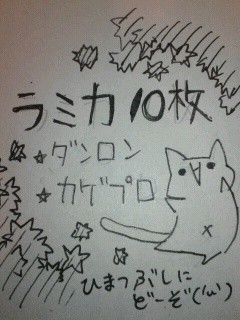 ラミカ10枚
★ダンロン
★カゲプロ
ひまつぶしに
どーぞ('ω')